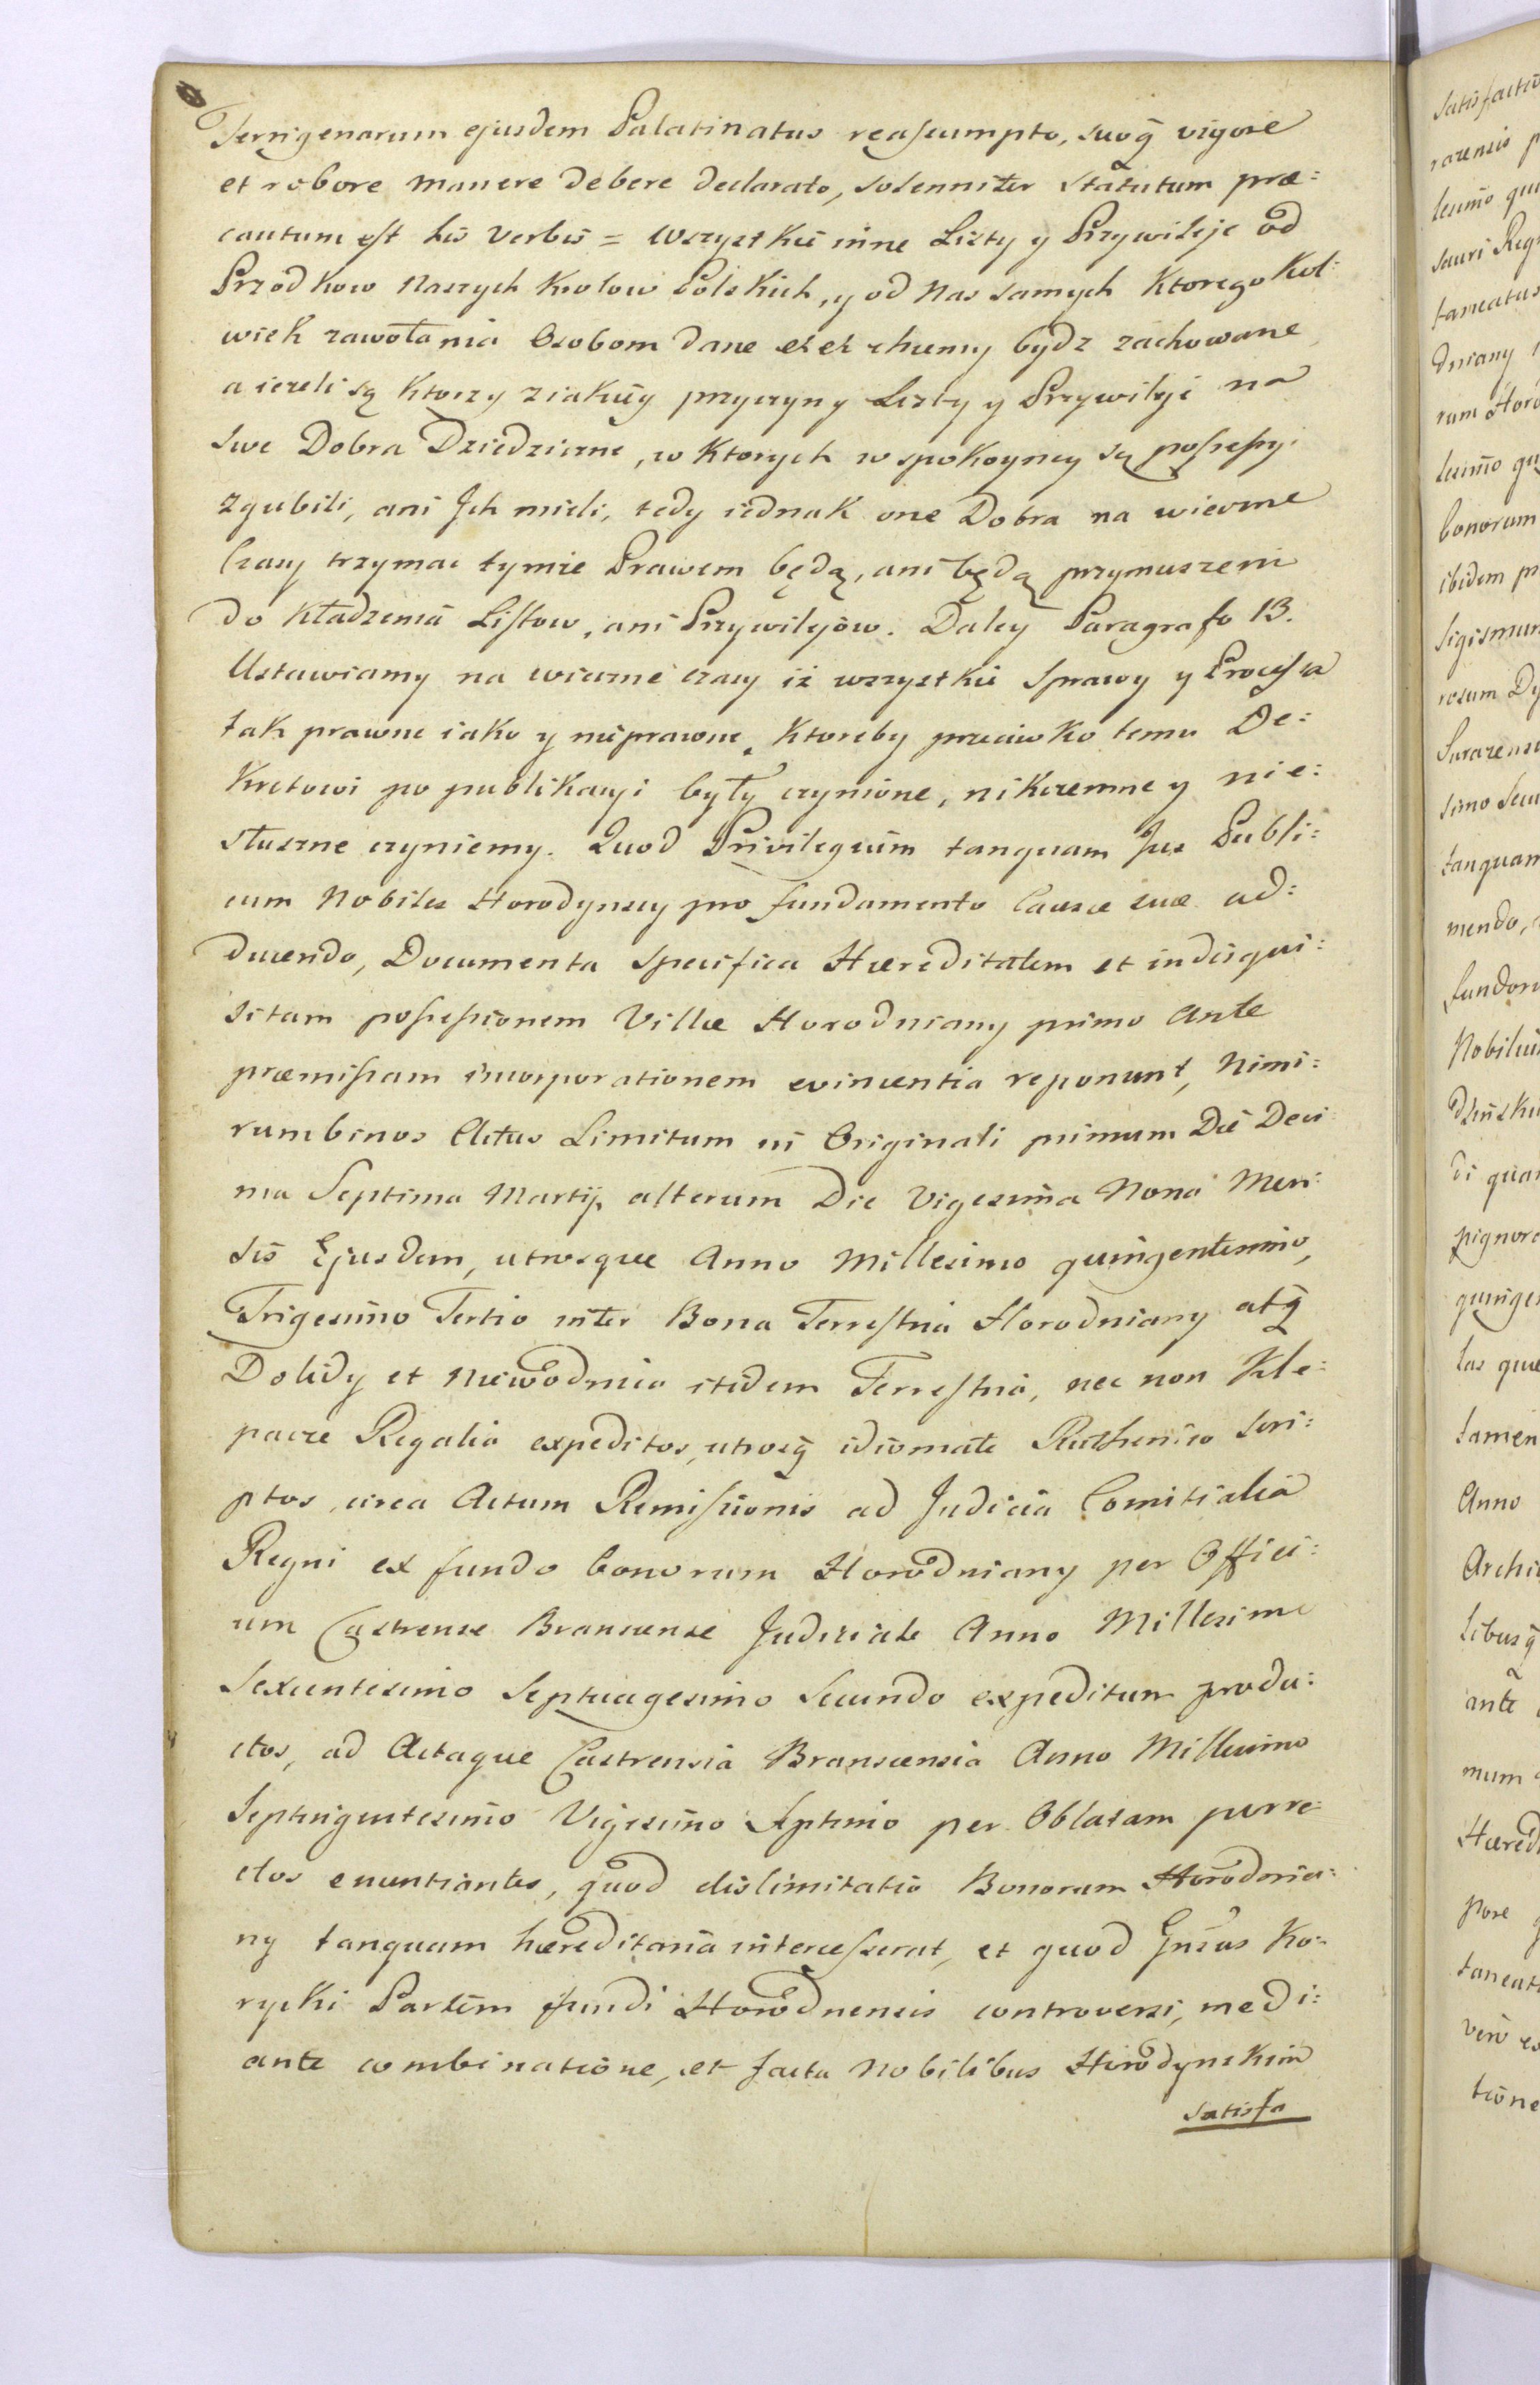 Terrigenarum ejusdem Palatinatus reassumpto, suoq̃ vigore
et robore manere debere declarato, solenniter statutum præ:
cautum est his verbis = Wszystkie inne Listy y Przywileje od
Przodkow Naszych Krolow Polskich, y od Nas samych Ktoregokol:
wiek zawołania Osobom dane etct chcemy bydz zachowane,
a ieżeli są Ktorzy ziakiey przyczyny Listy y Przywileje na
swe Dobra Dziedziczne, w Ktorych w spokoyney są possessyi
zgubili, ani Jch mieli, tedy iednak one Dobra na wieczne
Czasy trzymac tymże Prawem będą, ani będą przymuszeni
do Kładzenia Listow, ani Przywilejow. Daley Paragrafo 13.
Ustawiamy na wieczne czasy iż wszystkie Sprawy y Processa
tak prawne iako y nieprawne, Ktoreby przeciwko temu De:
Kretowi po publikacyi były czynione, nikczemne y nie:
słuszne czyniemy. Quod Privilegium tanquam Jus Publi:
cum Nobiles Horodynscy pro fundamento Causæ suæ ad:
ducendo, Documenta specifica Hæreditatem et indisqui:
sitam possessionem Villæ Horodniany primo ante
præmissam incorporationem evincentia reponunt, Nimi:
rum binos Actus Limitum in Originali primum Die Deci:
ma Septima Martij, alterum Die Vigesima Nona Men:
sis Ejusdem, utrosque Anno Millesimo quingentesimo,
Trigesimo Tertio inter Bona Terrestria Horodniany atq̃
Dolidy et Niewodnica itidem Terrestria, nec non Kle:
pacze Regalia expeditos, utrosq̃ idiomate Ruthenico scri:
ptos, circa Actum Remissionis ad Judicia Comitialia
Regni ex fundo bonorum Horodniany per Offici:
um Castrense Branscense Judiciale Anno Millesimo
Sexcentesimo Septuagesimo Secundo expeditum produ:
ctos, ad Actaque Castrensia Branscensia Anno Millesimo
Septingentesimo Vigesimo Septimo per Oblatam porre
ctos enuntiantes, quod dislimitatio Bonorum Horodnia:
ny tanquam hæreditaria intercesserat, et quod Gnsus Ko:
rycki Partem fundi Horodnensis controversi, medi:
ante combinatione, et facta Nobilibus Horodynskim
satisfa